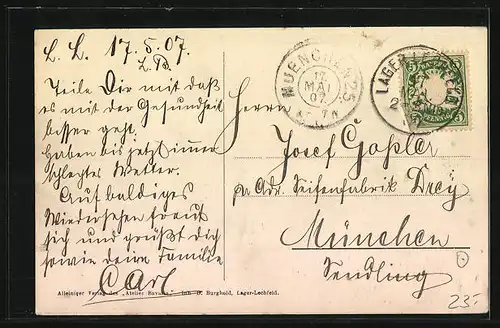 L. L. 17.5.07.
Teile Dir mit daß
es mit der Gesundheit
besser geht.
Haben bis jetzt immer
schlechtes Wetter.
Auf baldiges
Wiedersehen freut
sich und grüßt dich
sowie deine Familie
Carl
Alleiniger Verlag des "Atelier Bavaria," Inh. O. Burghold, Lager-Lechfeld.
MUENCHEN 25
17
MAI
07
LAGER LECHFELD
BAYERN
5 PFENNIG 5
Herrn
Josef Goßler
pr. Adr. Seifenfabrik Dreÿ
München
Sendling
23-